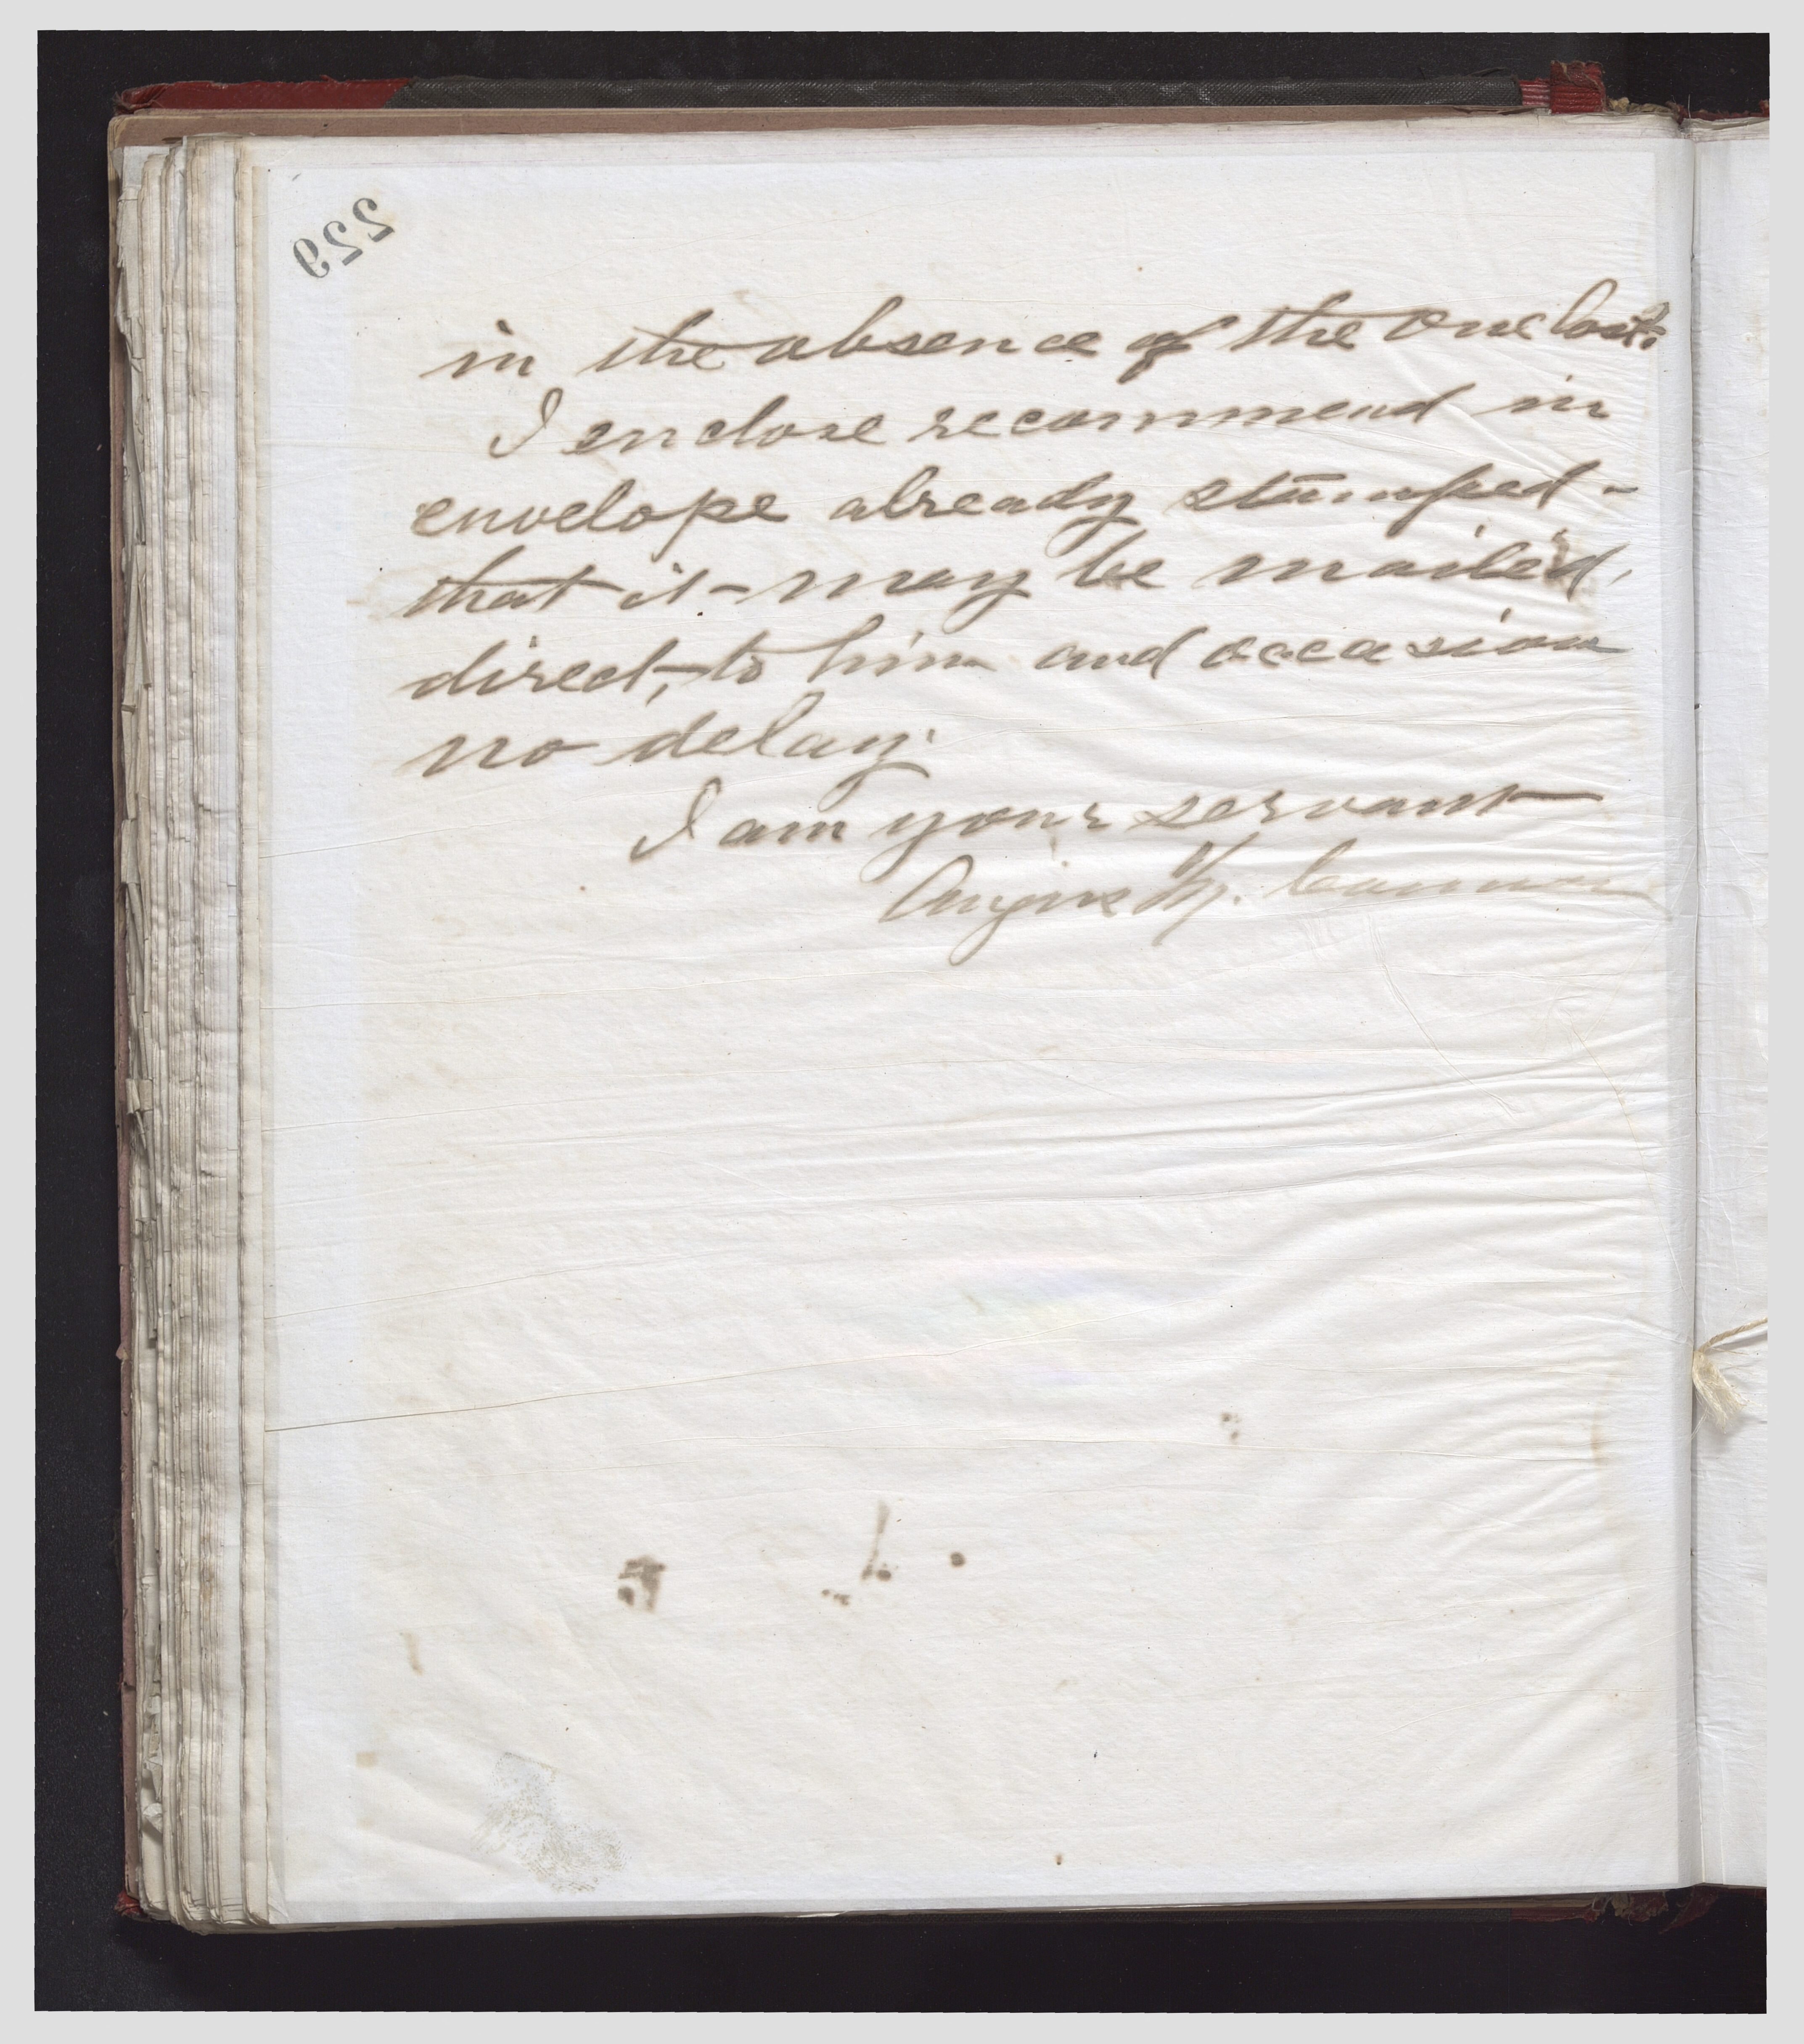 229
in the absence of the one lost.
I enclose recommend in
envelope already stamped -
that it - may be mailed,
direct, to him and occasion
no delay.
I am your servant
Angus M. Cannon